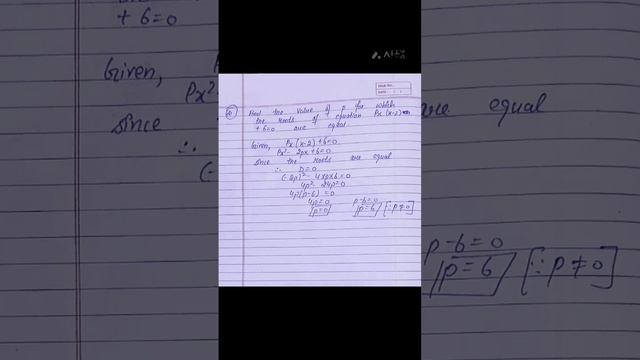 + 6=0
Given,
Px²-
since
∴
are equal
p-6=0
p=6 [∵ p≠0]
Find the value of p for which
the roots of equation Px(x-2)
+6=0 are equal
Given, Px(x-2)+6=0
Px²- 2px+6=0
since the roots are equal
∴ D=0
(-2p)²- 4xpx6=0
4p²- 24p=0
4p(p-6) =0
4p=0 p-6=0
p=0 p=6 [∵p≠0]